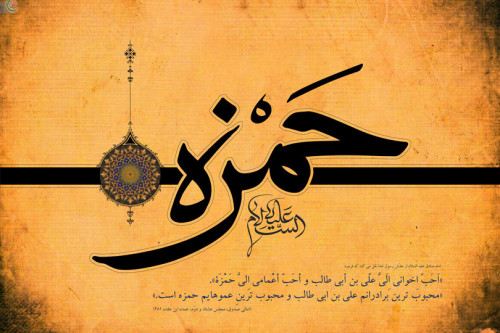 حَمْزه
علیه السلام
«أحَبّ اخوانی الیَّ علّی بن أبی طالب و أحَبّ أعْمامی الیَّ حَمْزَة».
«محبوب ترین برادرانم علی بن ابی طالب و محبوب ترین عموهایم حمزه است.»